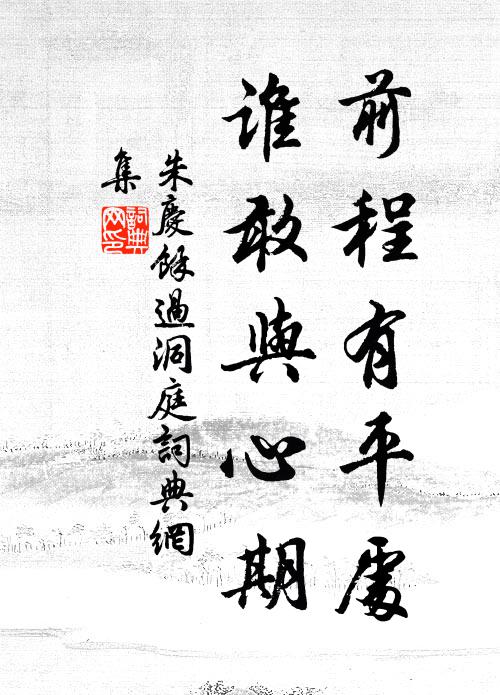 前程有平處
誰敢與心期
朱慶餘過洞庭詞典網
集
詞典網印